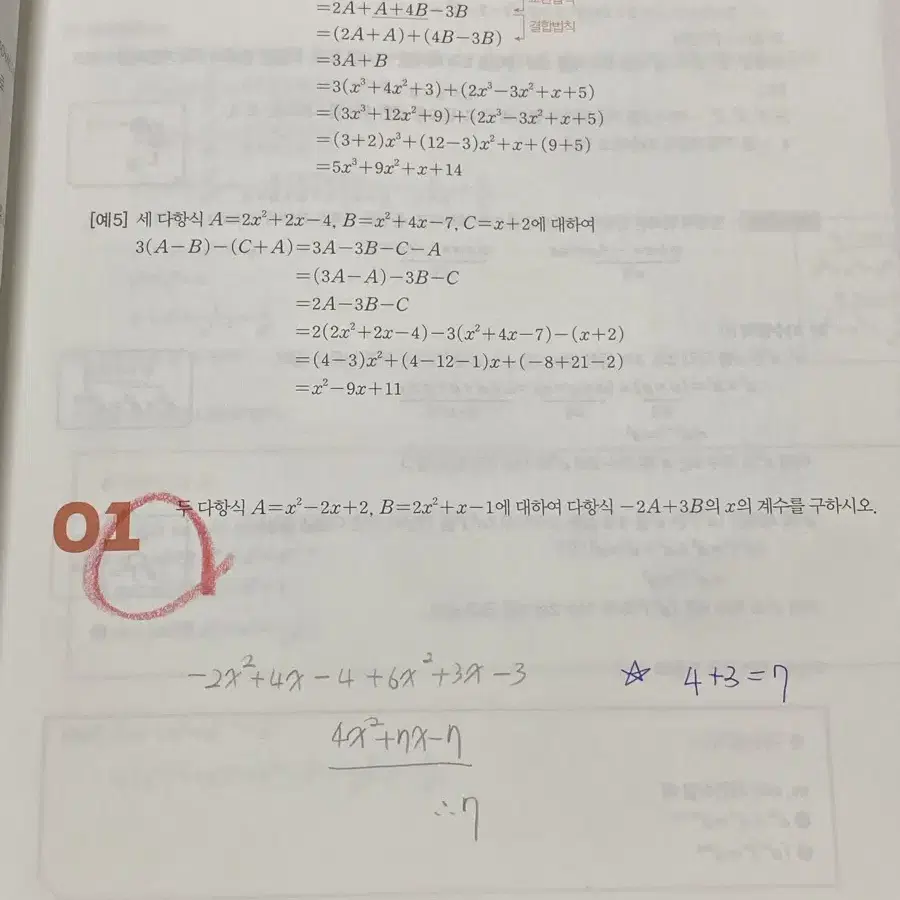 =2A+A+4B-3B
결합법칙
=(2A+A)+(4B-3B)
=3A+B
=3(x³+4x²+3)+(2x³-3x²+x+5)
=(3x³+12x²+9)+(2x³-3x²+x+5)
=(3+2)x³+(12-3)x²+x+(9+5)
=5x³+9x²+x+14
[예5] 세 다항식 A=2x²+2x-4, B=x²+4x-7, C=x+2에 대하여
3(A-B)-(C+A)=3A-3B-C-A
=(3A-A)-3B-C
=2A-3B-C
=2(2x²+2x-4)-3(x²+4x-7)-(x+2)
=(4-3)x²+(4-12-1)x+(-8+21-2)
=x²-9x+11
01 두 다항식 A=x²-2x+2, B=2x²+x-1에 대하여 다항식 -2A+3B의 x의 계수를 구하시오.
-2x²+4x-4+6x²+3x-3 ☆ 4+3=7
4x²+7x-7
∴7